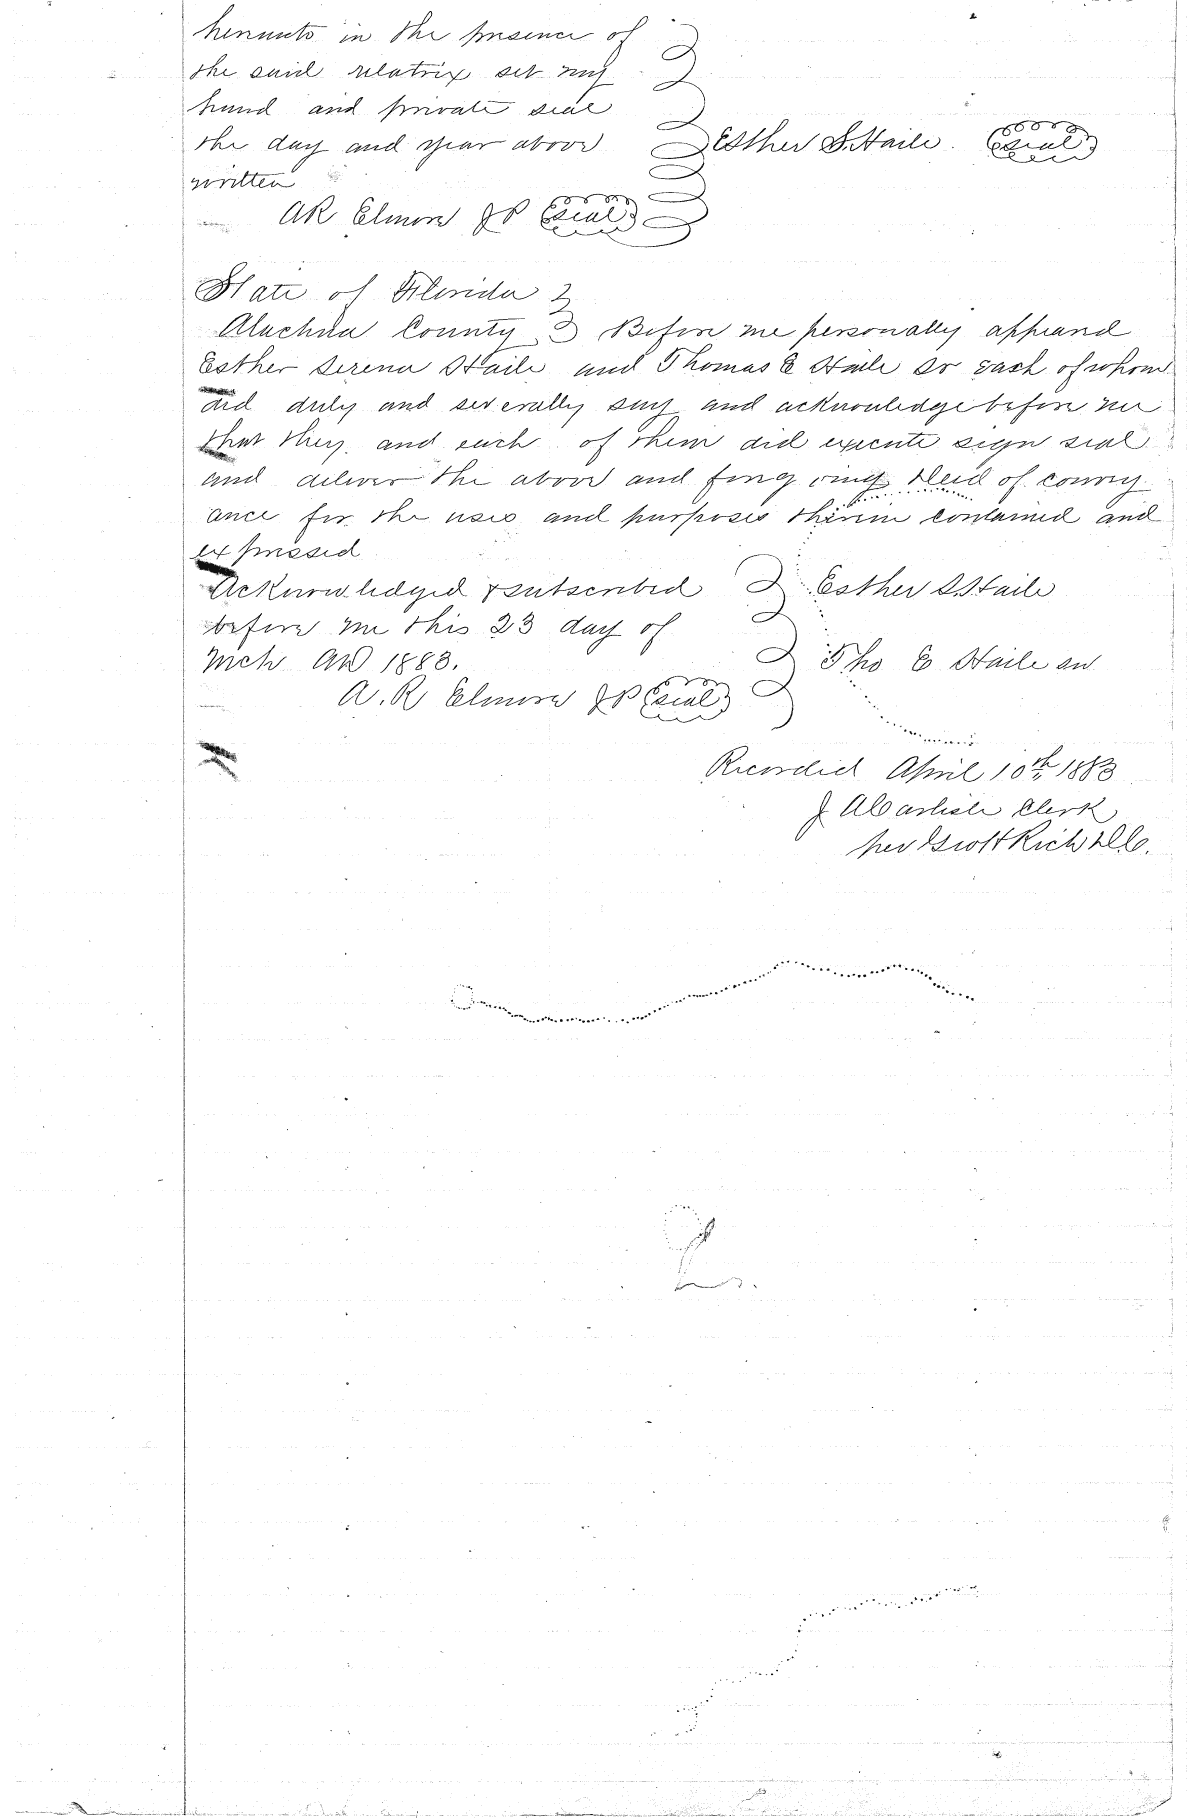 hereunto in the presence of
the said relatrix set my
hand and private seal
the day and year above Esther S. Haile. seal
written
AR Elmore JP seal
State of Florida
Alachua County Before me personally appeared
Esther Serena Haile and Thomas E Haile sr each of whom
did duly and severally say and acknowledge before me
that they and each of them did execute sign seal
and deliver the above and foregoing Deed of convey
ance for the uses and purposes therein contained and
expressed
Acknowledged & subscribed Esther S. Haile
before me this 23 day of
Mch AD 1883. Tho E Haile sr
A. R Elmore JP seal
Recorded April 10th 1883
J A Carlisle Clerk
per Rich D.C.